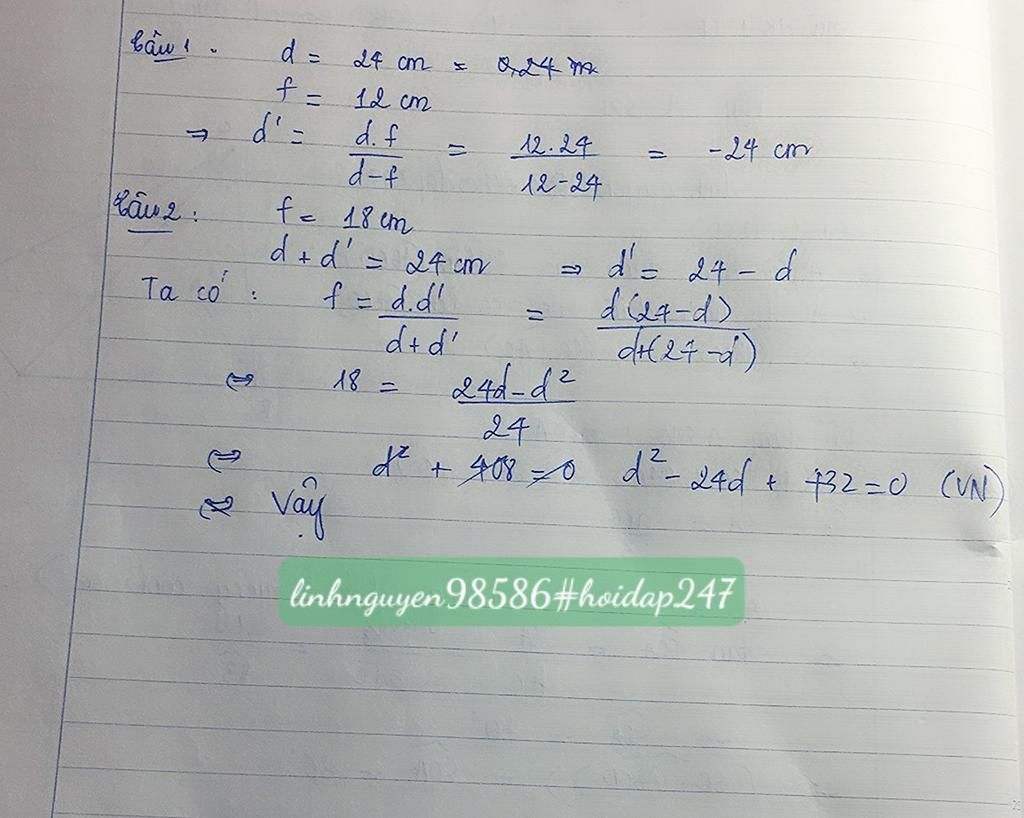 Câu 1. d = 24 cm = 0,24 m
f = 12 cm
⇒ d' = d.f / d-f = 12.24 / 12-24 = -24 cm
Câu 2: f = 18 cm
d + d' = 24 cm ⇒ d' = 24 - d
Ta có: f = d.d' / d+d' = d(24-d) / d+(24-d)
⇔ 18 = 24d-d² / 24
⇔ d² + 408 = 0 d² - 24d + 432 = 0 (VN)
⇔ Vậy
linhnguyen98586#hoidap247